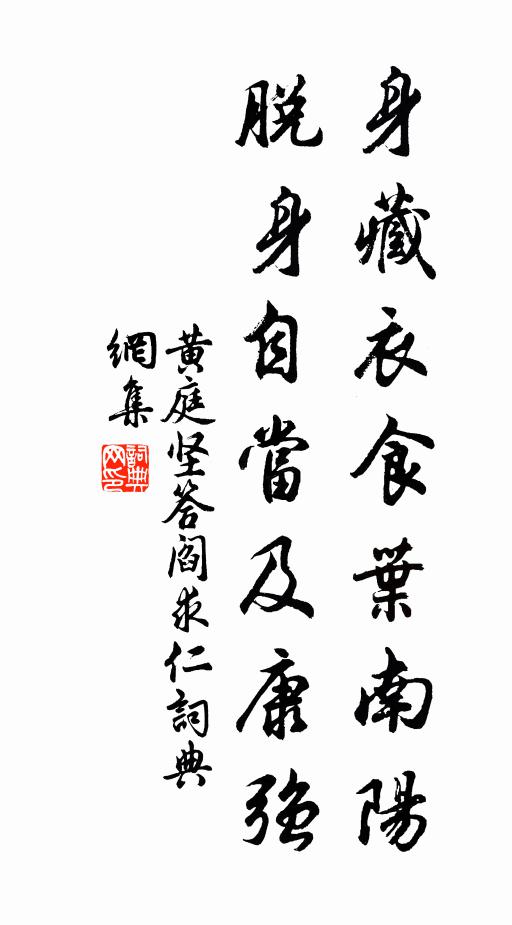 身藏衣食葉南陽
脱身自當及康強
黄庭坚答阎求仁詞典
網集
詞典
网印